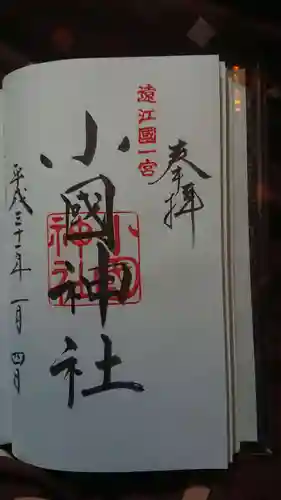 奉拝
遠江國一宮
小國神社
小國神社
平成三十一年一月四日